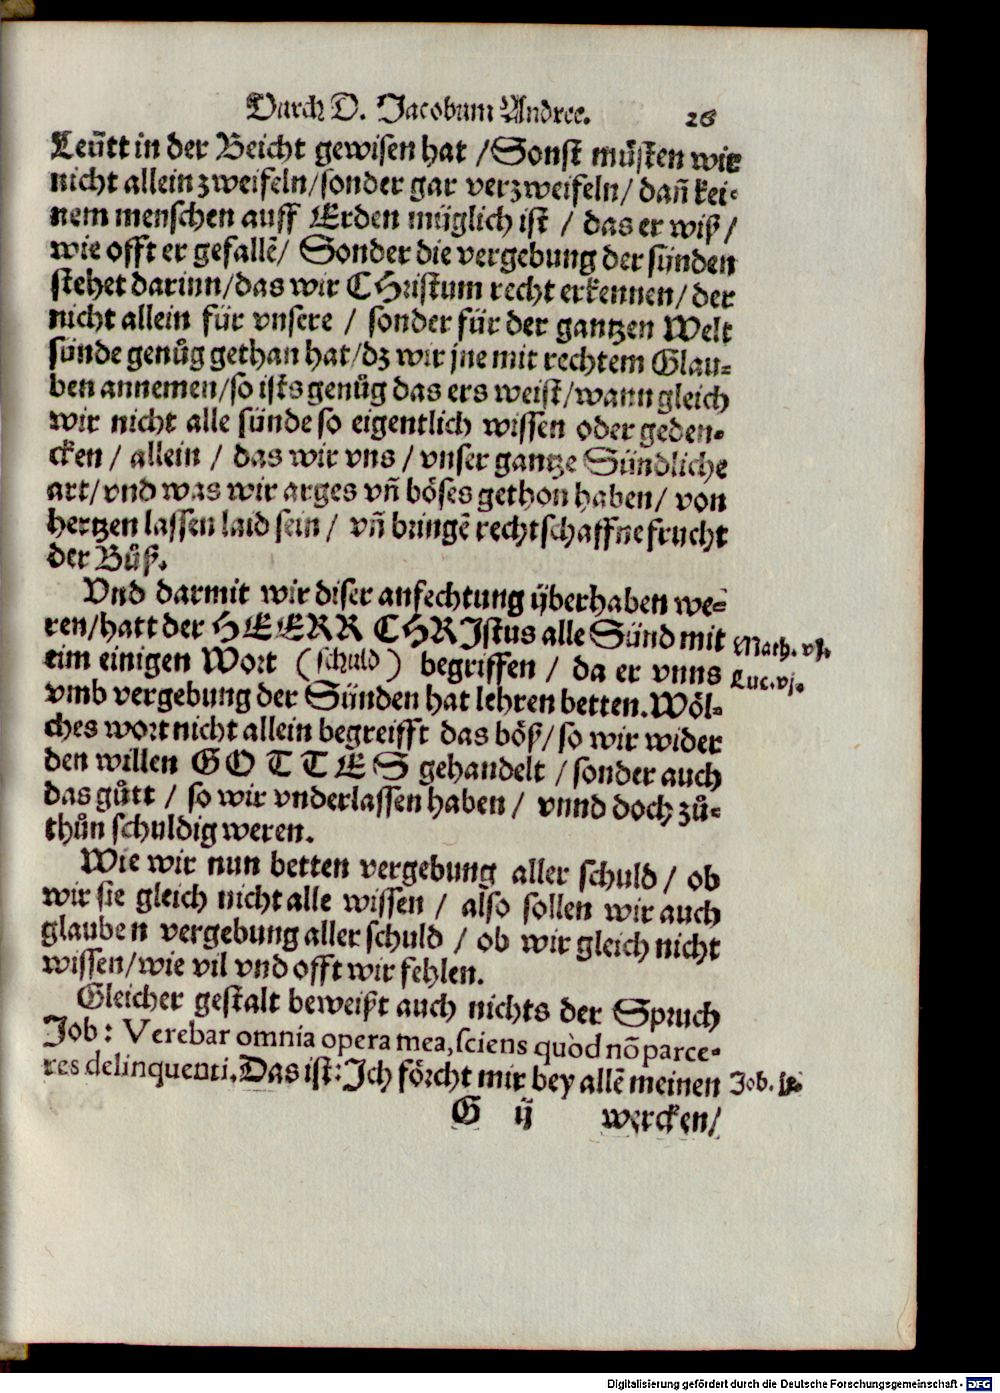 Durch D. Jacobum Andree. 26
Leütt in der Beicht gewisen hat / Sonst müsten wir
nicht allein zweifeln / sonder gar verzweifeln / dañ kei-
nem menschen auff Erden müglich ist / das er wiß /
wie offt er gefallẽ / Sonder die vergebung der sünden
stehet darinn / das wir CHristum recht erkennen / der
nicht allein für vnsere / sonder für der gantzen Welt
sünde genůg gethan hat / dz wir jne mit rechtem Glau-
ben annemen / so ists genůg das ers weist / wann gleich
wir nicht alle sünde so eigentlich wissen oder geden-
cken / allein / das wir vns / vnser gantze Sündliche
art / vnd was wir arges vñ böses gethon haben / von
hertzen lassen laid sein / vñ bringẽ rechtschaffne frucht
der Bůß.
Vnd darmit wir diser anfechtung überhaben we-
ren / hatt der HEERR CHRIstus alle Sünd mit
eim einigen Wort (schuld) begriffen / da er vnns
vmb vergebung der Sünden hat lehren betten. Wöl-
ches wort nicht allein begreifft das böß / so wir wider
den willen GOTTES gehandelt / sonder auch
das gůtt / so wir vnderlassen haben / vnnd doch zů-
thůn schuldig weren.
Math. vj.
Luc. vj.
Wie wir nun betten vergebung aller schuld / ob
wir sie gleich nicht alle wissen / also sollen wir auch
glauben vergebung aller schuld / ob wir gleich nicht
wissen / wie vil vnd offt wir fehlen.
Gleicher gestalt beweißt auch nichts der Spruch
Job: Verebar omnia opera mea, sciens quòd nõ parce-
res delinquenti. Das ist: Ich förcht mir bey allẽ meinen
Job.
G ij wercken /
Digitalisierung gefördert durch die Deutsche Forschungsgemeinschaft - DFG